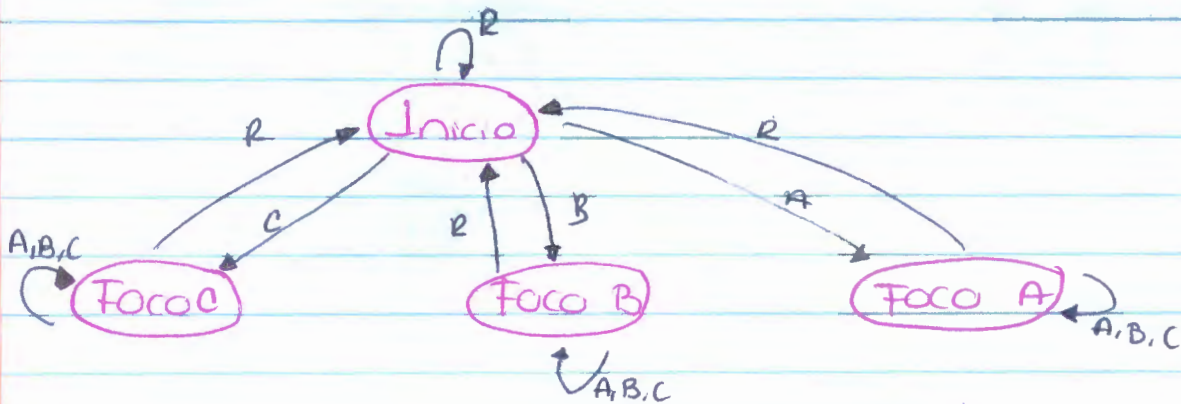 R
Inicio
R
R
C
R
B
A
A,B,C
Foco C
Foco B
Foco A
A,B,C
A,B,C